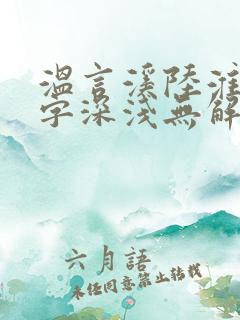 溫言溪陸淮
字深淺無解
六月語
未經同意禁止轉載